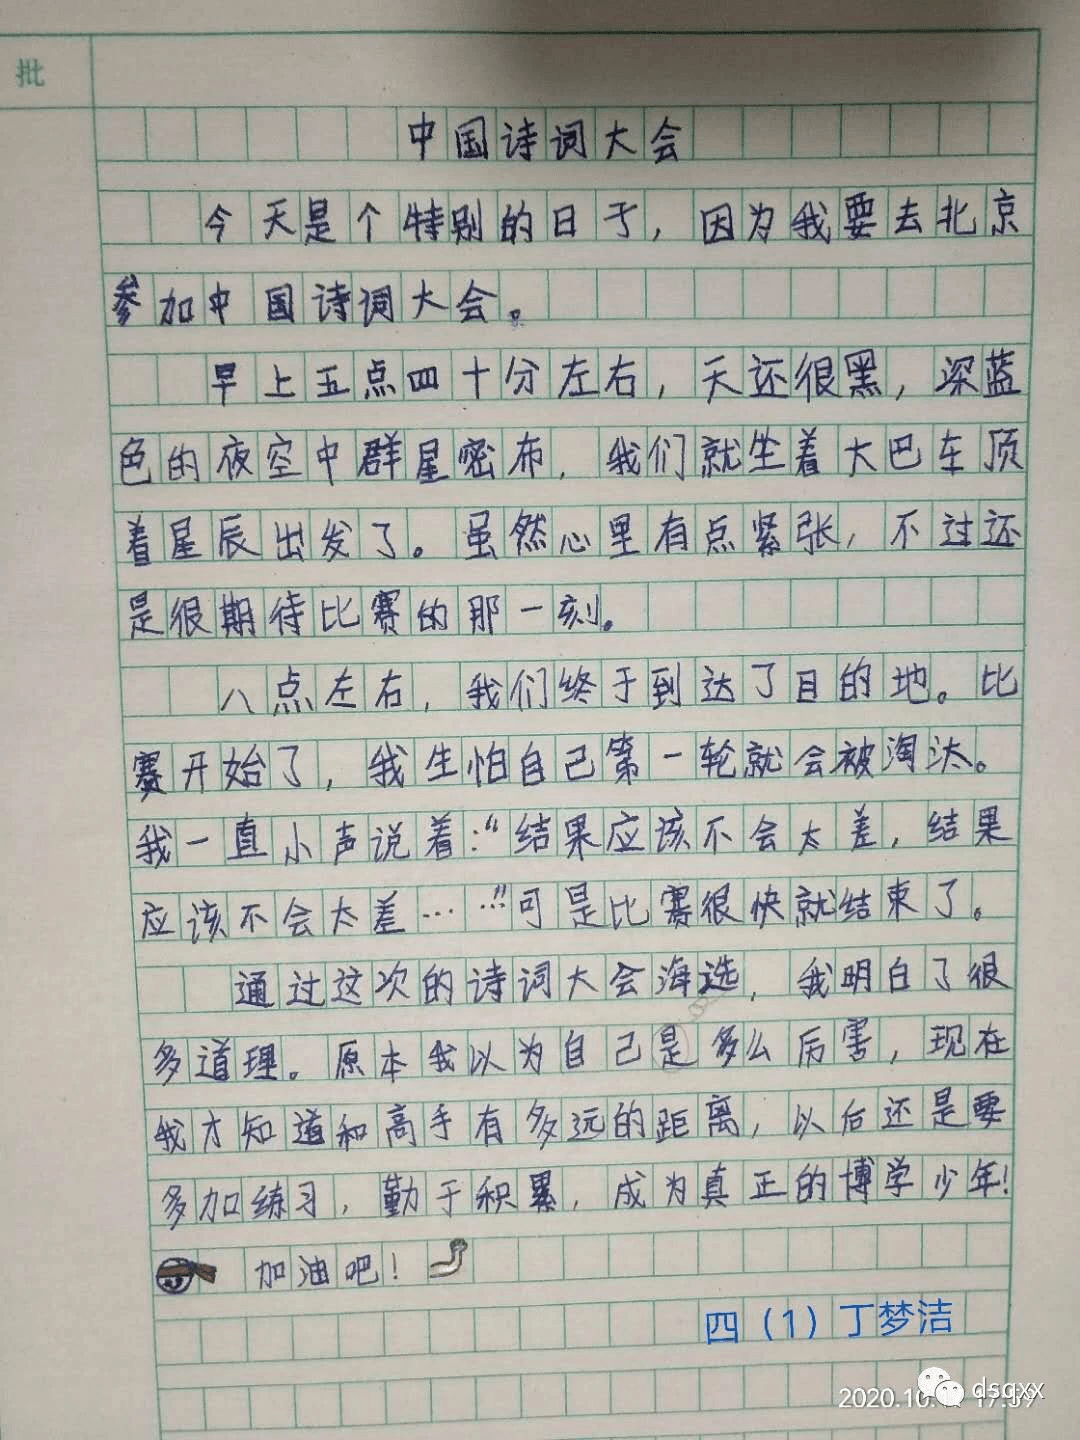 批
中国诗词大会
今天是个特别的日子，因为我要去北京
参加中国诗词大会。
早上五点四十分左右，天还很黑，深蓝
色的夜空中群星密布，我们就坐着大巴车顶
着星辰出发了。虽然心里有点紧张，不过还
是很期待比赛的那一刻。
八点左右，我们终于到达了目的地。比
赛开始了，我生怕自己第一轮就会被淘汰。
我一直小声说着：“结果应该不会太差，结果
应该不会太差……”可是比赛很快就结束了。
通过这次的诗词大会海选，我明白了很
多道理。原本我以为自己是多么厉害，现在
我才知道和高手有多远的距离，以后还是要
多加练习，勤于积累，成为真正的博学少年！
加油吧！
四（1）丁梦洁
dsqxx